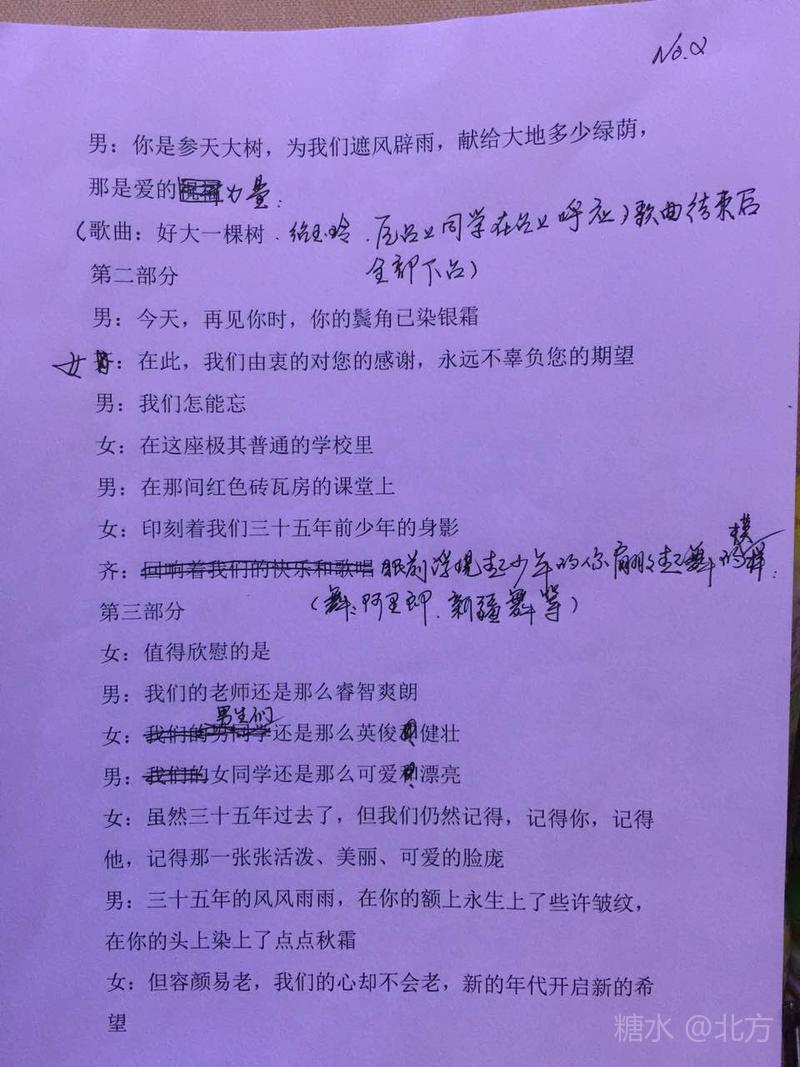 No.2
男：你是参天大树，为我们遮风辟雨，献给大地多少绿荫，
那是爱的力量：
（歌曲：好大一棵树．玲．后台上同学在台上呼应）歌曲结束后
全部下台）
第二部分
男：今天，再见你时，你的鬓角已染银霜
女：在此，我们由衷的对您的感谢，永远不辜负您的期望
男：我们怎能忘
女：在这座极其普通的学校里
男：在那间红色砖瓦房的课堂上
女：印刻着我们三十五年前少年的身影
齐：回响着我们的快乐和歌唱 眼前浮现起少年的你翩翩起舞的模样：
（舞：阿里郎．新疆舞等）
第三部分
女：值得欣慰的是
男：我们的老师还是那么睿智爽朗
男生们
女：我们的男同学还是那么英俊健壮
男：我们的女同学还是那么可爱漂亮
女：虽然三十五年过去了，但我们仍然记得，记得你，记得
他，记得那一张张活泼、美丽、可爱的脸庞
男：三十五年的风风雨雨，在你的额上永生上了些许皱纹，
在你的头上染上了点点秋霜
女：但容颜易老，我们的心却不会老，新的年代开启新的希
望
糖水 @北方